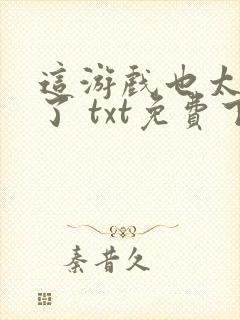 這游戲也太
了 txt免費下
秦昔久